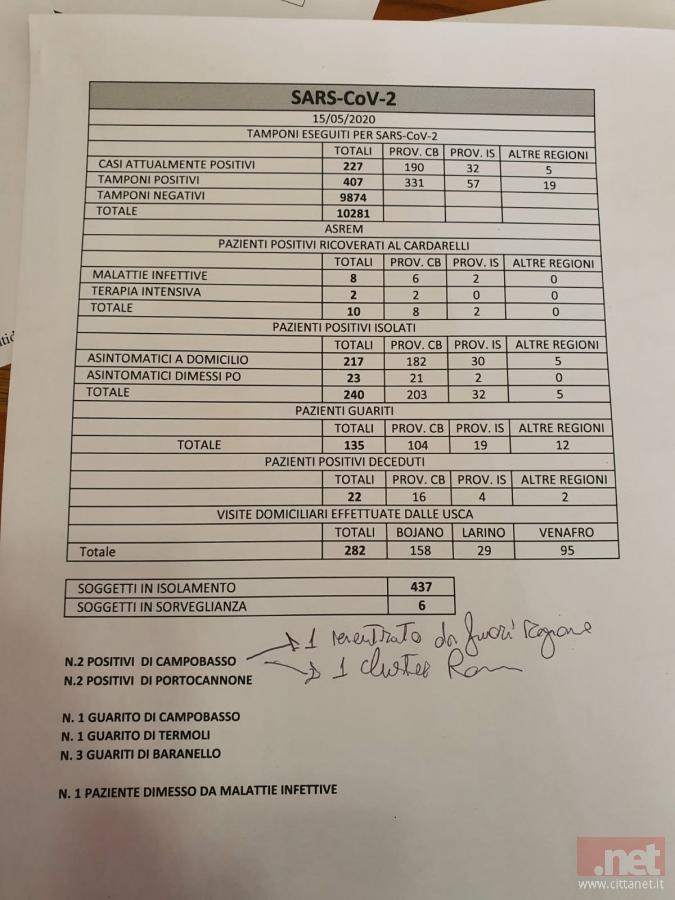 SARS-CoV-2
15/05/2020
TAMPONI ESEGUITI PER SARS-CoV-2
TOTALI PROV. CB PROV. IS ALTRE REGIONI
CASI ATTUALMENTE POSITIVI 227 190 32 5
TAMPONI POSITIVI 407 331 57 19
TAMPONI NEGATIVI 9874
TOTALE 10281
ASREM
PAZIENTI POSITIVI RICOVERATI AL CARDARELLI
TOTALI PROV. CB PROV. IS ALTRE REGIONI
MALATTIE INFETTIVE 8 6 2 0
TERAPIA INTENSIVA 2 2 0 0
TOTALE 10 8 2 0
PAZIENTI POSITIVI ISOLATI
TOTALI PROV. CB PROV. IS ALTRE REGIONI
ASINTOMATICI A DOMICILIO 217 182 30 5
ASINTOMATICI DIMESSI PO 23 21 2 0
TOTALE 240 203 32 5
PAZIENTI GUARITI
TOTALI PROV. CB PROV. IS ALTRE REGIONI
TOTALE 135 104 19 12
PAZIENTI POSITIVI DECEDUTI
TOTALI PROV. CB PROV. IS ALTRE REGIONI
22 16 4 2
VISITE DOMICILIARI EFFETTUATE DALLE USCA
TOTALI BOJANO LARINO VENAFRO
Totale 282 158 29 95
SOGGETTI IN ISOLAMENTO 437
SOGGETTI IN SORVEGLIANZA 6
1 rientrato da fuori Regione
N.2 POSITIVI DI CAMPOBASSO
1 cluster Rom
N.2 POSITIVI DI PORTOCANNONE
N. 1 GUARITO DI CAMPOBASSO
N. 1 GUARITO DI TERMOLI
N. 3 GUARITI DI BARANELLO
N. 1 PAZIENTE DIMESSO DA MALATTIE INFETTIVE
.net
www.cittanet.it